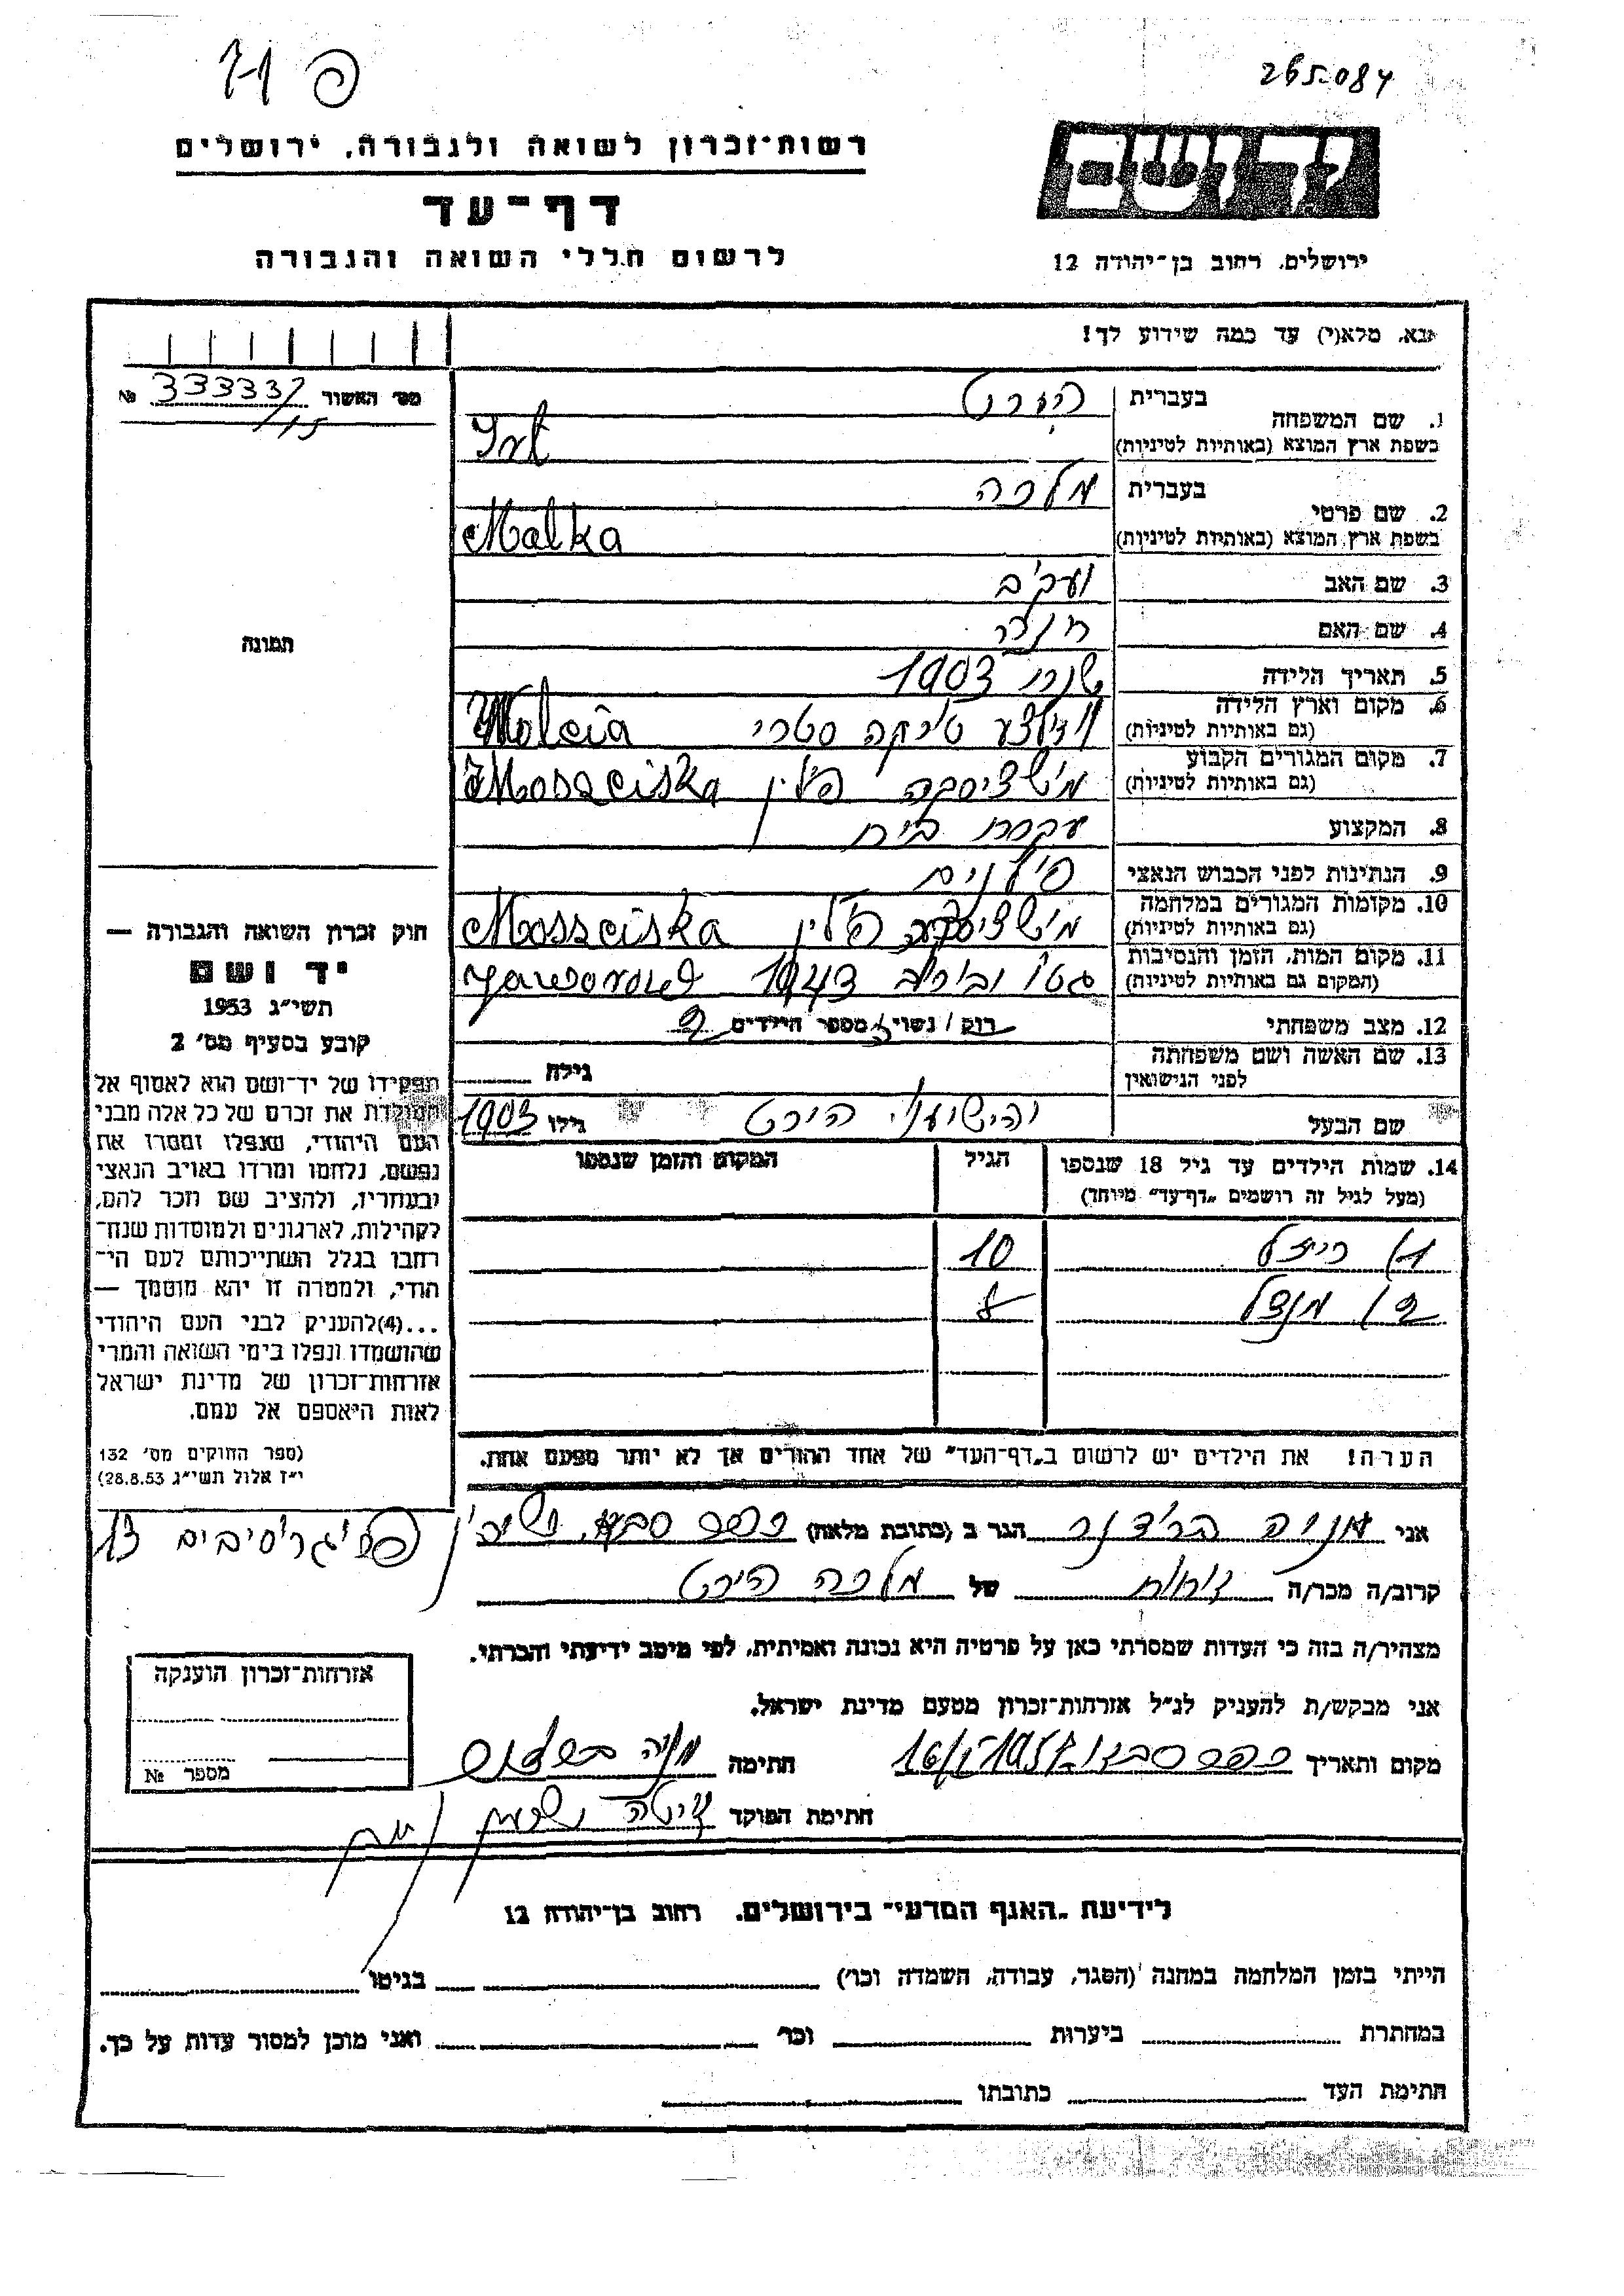 265084
רשות־זכרון לשואה ולגבורה, ירושלים
יד ושם
דף־עד
לרשום חללי השואה והגבורה
ירושלים, רחוב בן־יהודה 12
נא, מלא(י) עד כמה שידוע לך!
מס' האשור № 333337
1. שם המשפחה
בעברית הירט
בשפת ארץ המוצא (באותיות לטיניות) Irt
2. שם פרטי
בעברית מלכה
בשפת ארץ המוצא (באותיות לטיניות) Malka
3. שם האב יעקב
4. שם האם
תמונה
5. תאריך הלידה 1903
6. מקום וארץ הלידה
(גם באותיות לטיניות) Wolcia
7. מקום המגורים הקבוע מושציסקה פולין
(גם באותיות לטיניות) Mosseiska
8. המקצוע עקרת בית
9. הנתינות לפני הכבוש הנאצי פולנים
10. מקומות המגורים במלחמה מושציסקה פולין
(גם באותיות לטיניות) Mosseiska
11. מקום המות, הזמן והנסיבות גטו 1943
(המקום גם באותיות לטיניות)
12. מצב משפחתי רווק / נשוי / מספר הילדים 2
13. שם האשה ושם משפחתה
לפני הנישואין גילה
שם הבעל הירט גילו 1903
חוק זכרון השואה והגבורה —
יד ושם
תשי"ג 1953
קובע בסעיף מס' 2
תפקידו של יד־ושם הוא לאסוף אל
המולדת את זכרם של כל אלה מבני
העם היהודי, שנפלו ומסרו את
נפשם, נלחמו ומרדו באויב הנאצי
ובעוזריו, ולהציב שם וזכר להם,
לקהילות, לארגונים ולמוסדות שנח־
רבו בגלל השתייכותם לעם הי־
הודי, ולמטרה זו יהא מוסמך —
...(4) להעניק לבני העם היהודי
שהושמדו ונפלו בימי השואה והמרי
אזרחות־זכרון של מדינת ישראל
לאות היאספם אל עמם.
(ספר החוקים מס' 132
י"ז אלול תשי"ג 28.8.53)
14. שמות הילדים עד גיל 18 שנספו
(מעל לגיל זה רושמים "דף־עד" מיוחד)
הגיל
המקום והזמן שנספו
1) רייזל 10
2) מנדל 8
הערה! את הילדים יש לרשום ב"דף־העד" של אחד ההורים אך לא יותר מפעם אחת.
אני הגר ב (כתובת מלאה) כפר סבא
13
קרוב/ה מכר/ה של מלכה הירט
מצהיר/ה בזה כי העדות שמסרתי כאן על פרטיה היא נכונה ואמיתית, לפי מיטב ידיעתי והכרתי.
אני מבקש/ת להעניק לנ"ל אזרחות־זכרון מטעם מדינת ישראל.
מקום ותאריך כפר סבא חתימה
חתימת הפוקד
אזרחות־זכרון הוענקה
מספר №
לידיעת "האגף המדעי" בירושלים, רחוב בן־יהודה 12
הייתי בזמן המלחמה במחנה (הסגר, עבודה, השמדה וכו') בגיטו
במחתרת ביערות וכו' ואני מוכן למסור עדות על כך.
חתימת העד כתובתו